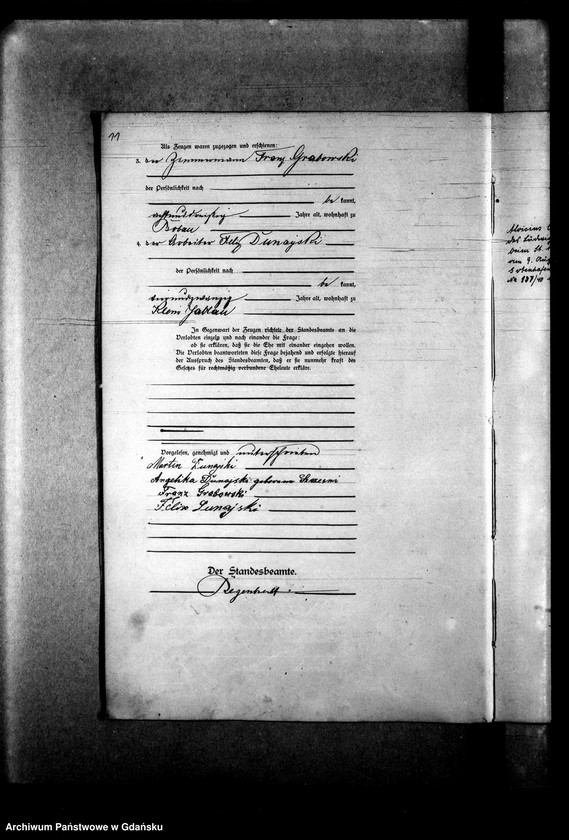 11
Als Zeugen waren zugezogen und erschienen:
3. der Zimmermann Franz Grabowski
der Persönlichkeit nach
be kannt,
achtunddreißig Jahre alt, wohnhaft zu
Bobau
4. der Arbeiter Felix Dunajski
der Persönlichkeit nach
be kannt,
Jahre alt, wohnhaft zu
Klein Jablau
In Gegenwart der Zeugen richtete der Standesbeamte an die
Verlobten einzeln und nach einander die Frage:
ob sie erklären, daß sie die Ehe mit einander eingehen wollen.
Die Verlobten beantworteten diese Frage bejahend und erfolgte hierauf
der Ausspruch des Standesbeamten, daß er sie nunmehr kraft des
Gesetzes für rechtmäßig verbundene Eheleute erkläre.
Vorgelesen, genehmigt und unterschrieben
Martin Dunajski
Angelika Dunajski geborene
Franz Grabowski
Felix Dunajski
Der Standesbeamte.
Aloisius
des Ludwig
beim St.
am 9. Aug
Nr 187/
Archiwum Państwowe w Gdańsku